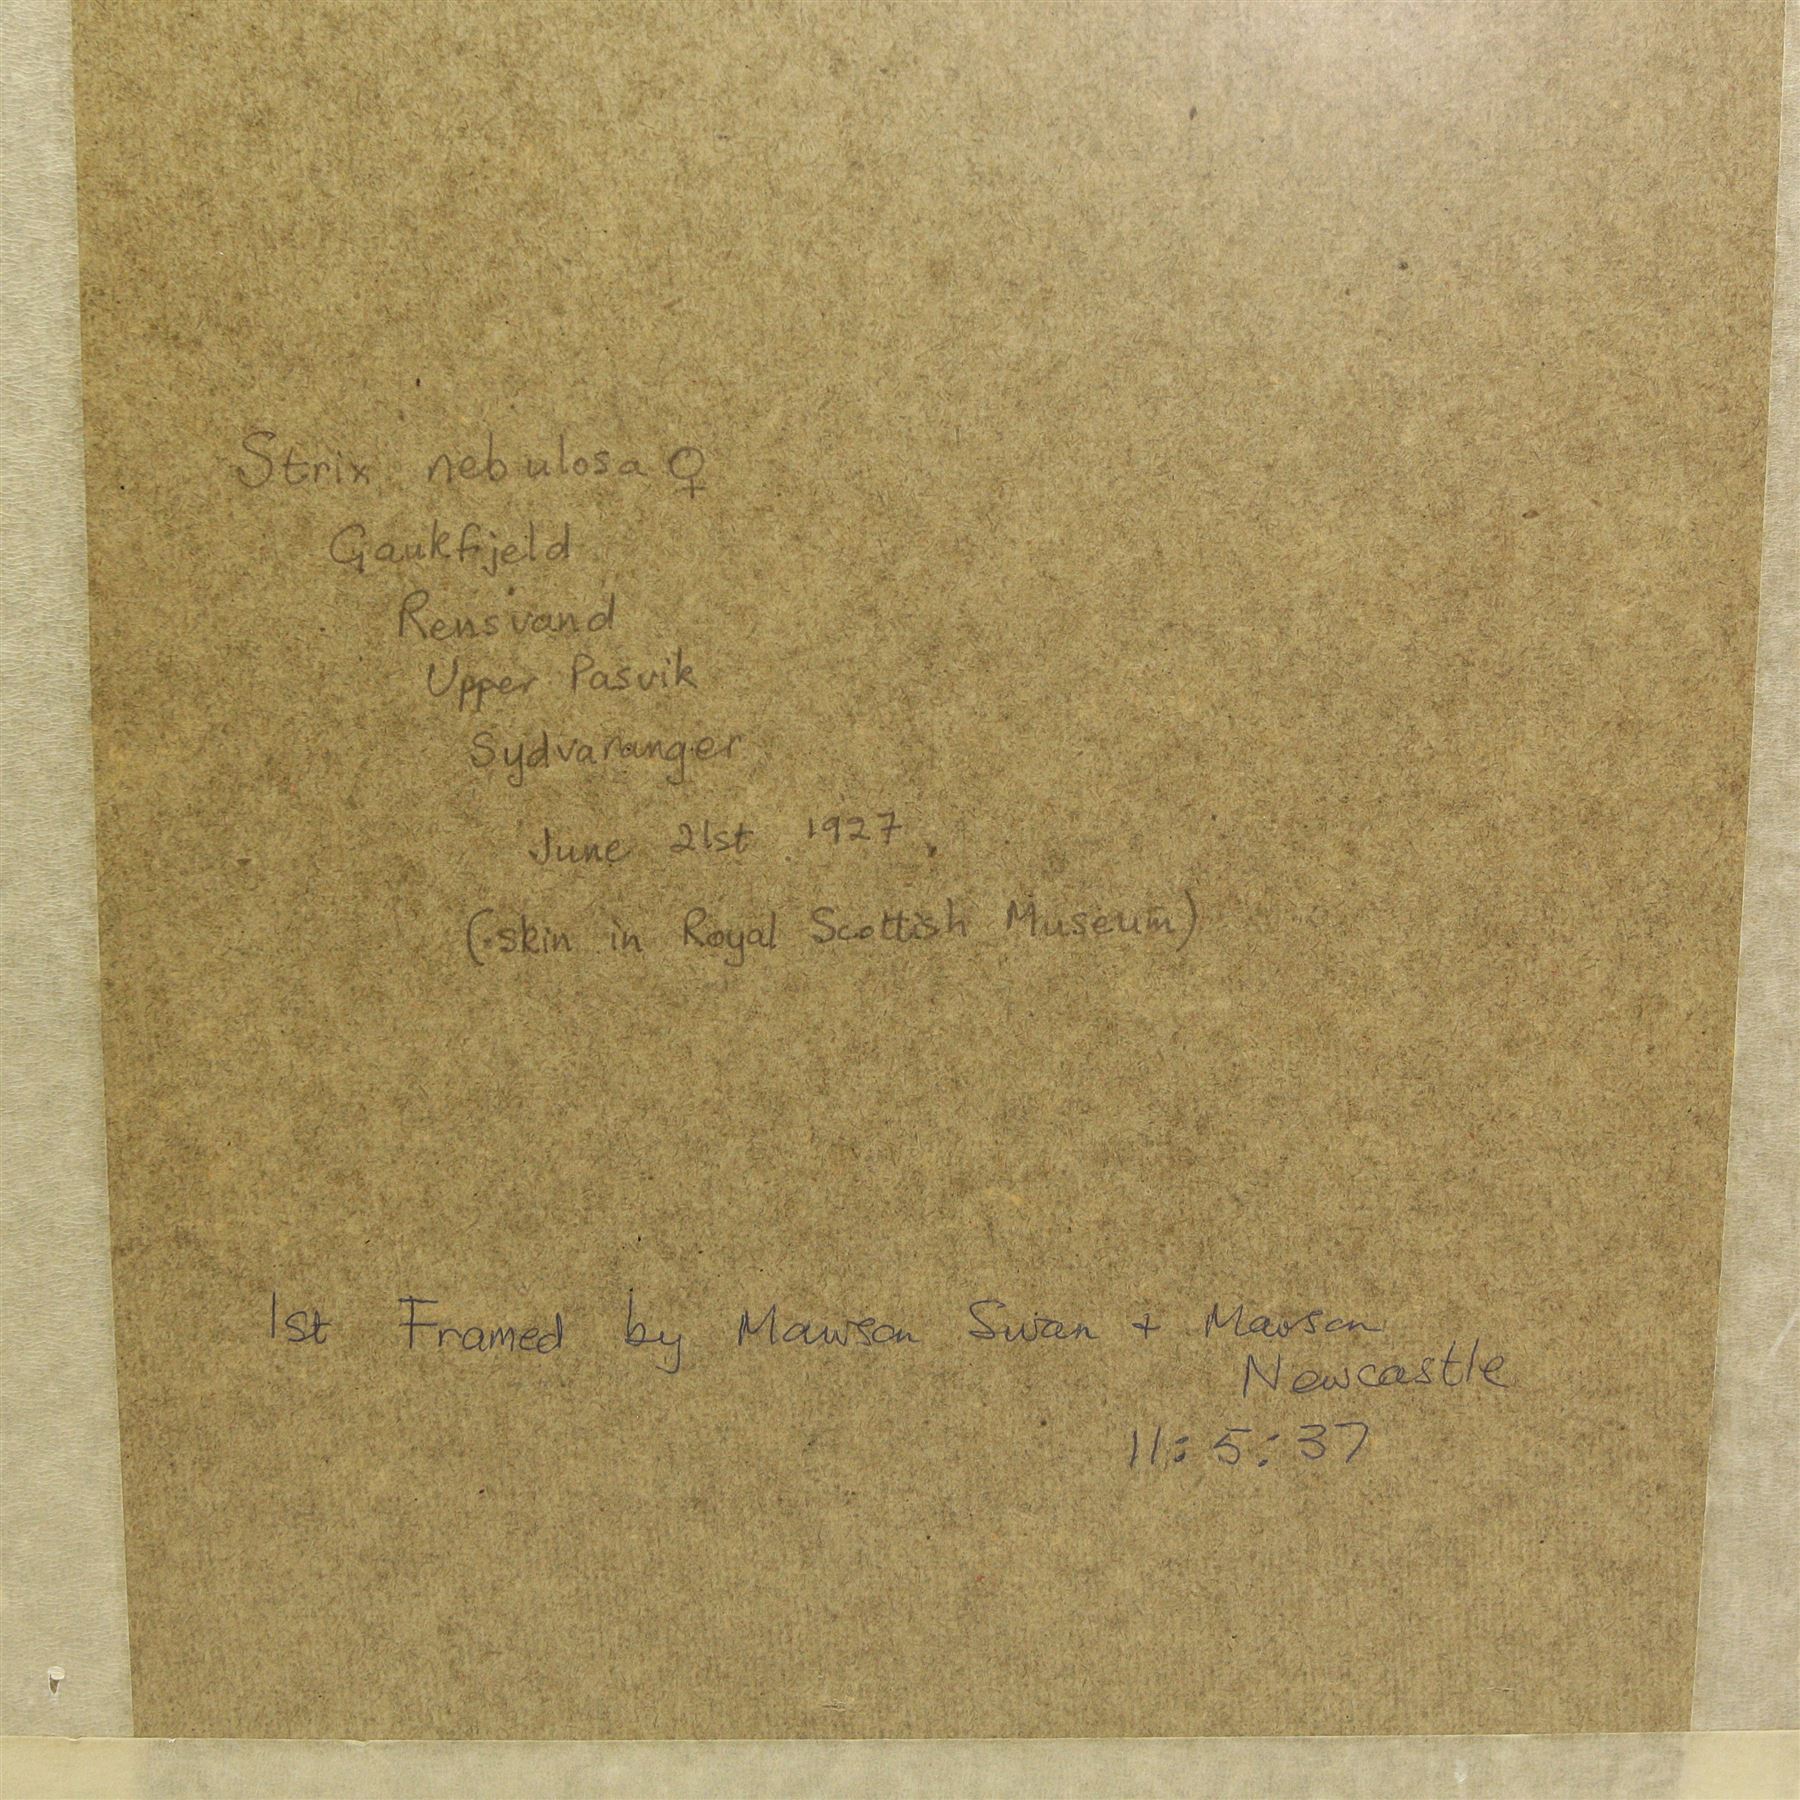 Strix nebulosa ♀
Gaukfjeld
Rensvand
Upper Pasvik
Sydvaranger
June 21st 1927
(skin in Royal Scottish Museum)
1st Framed by Mawson Swan + Mawson
Newcastle
11:5:37